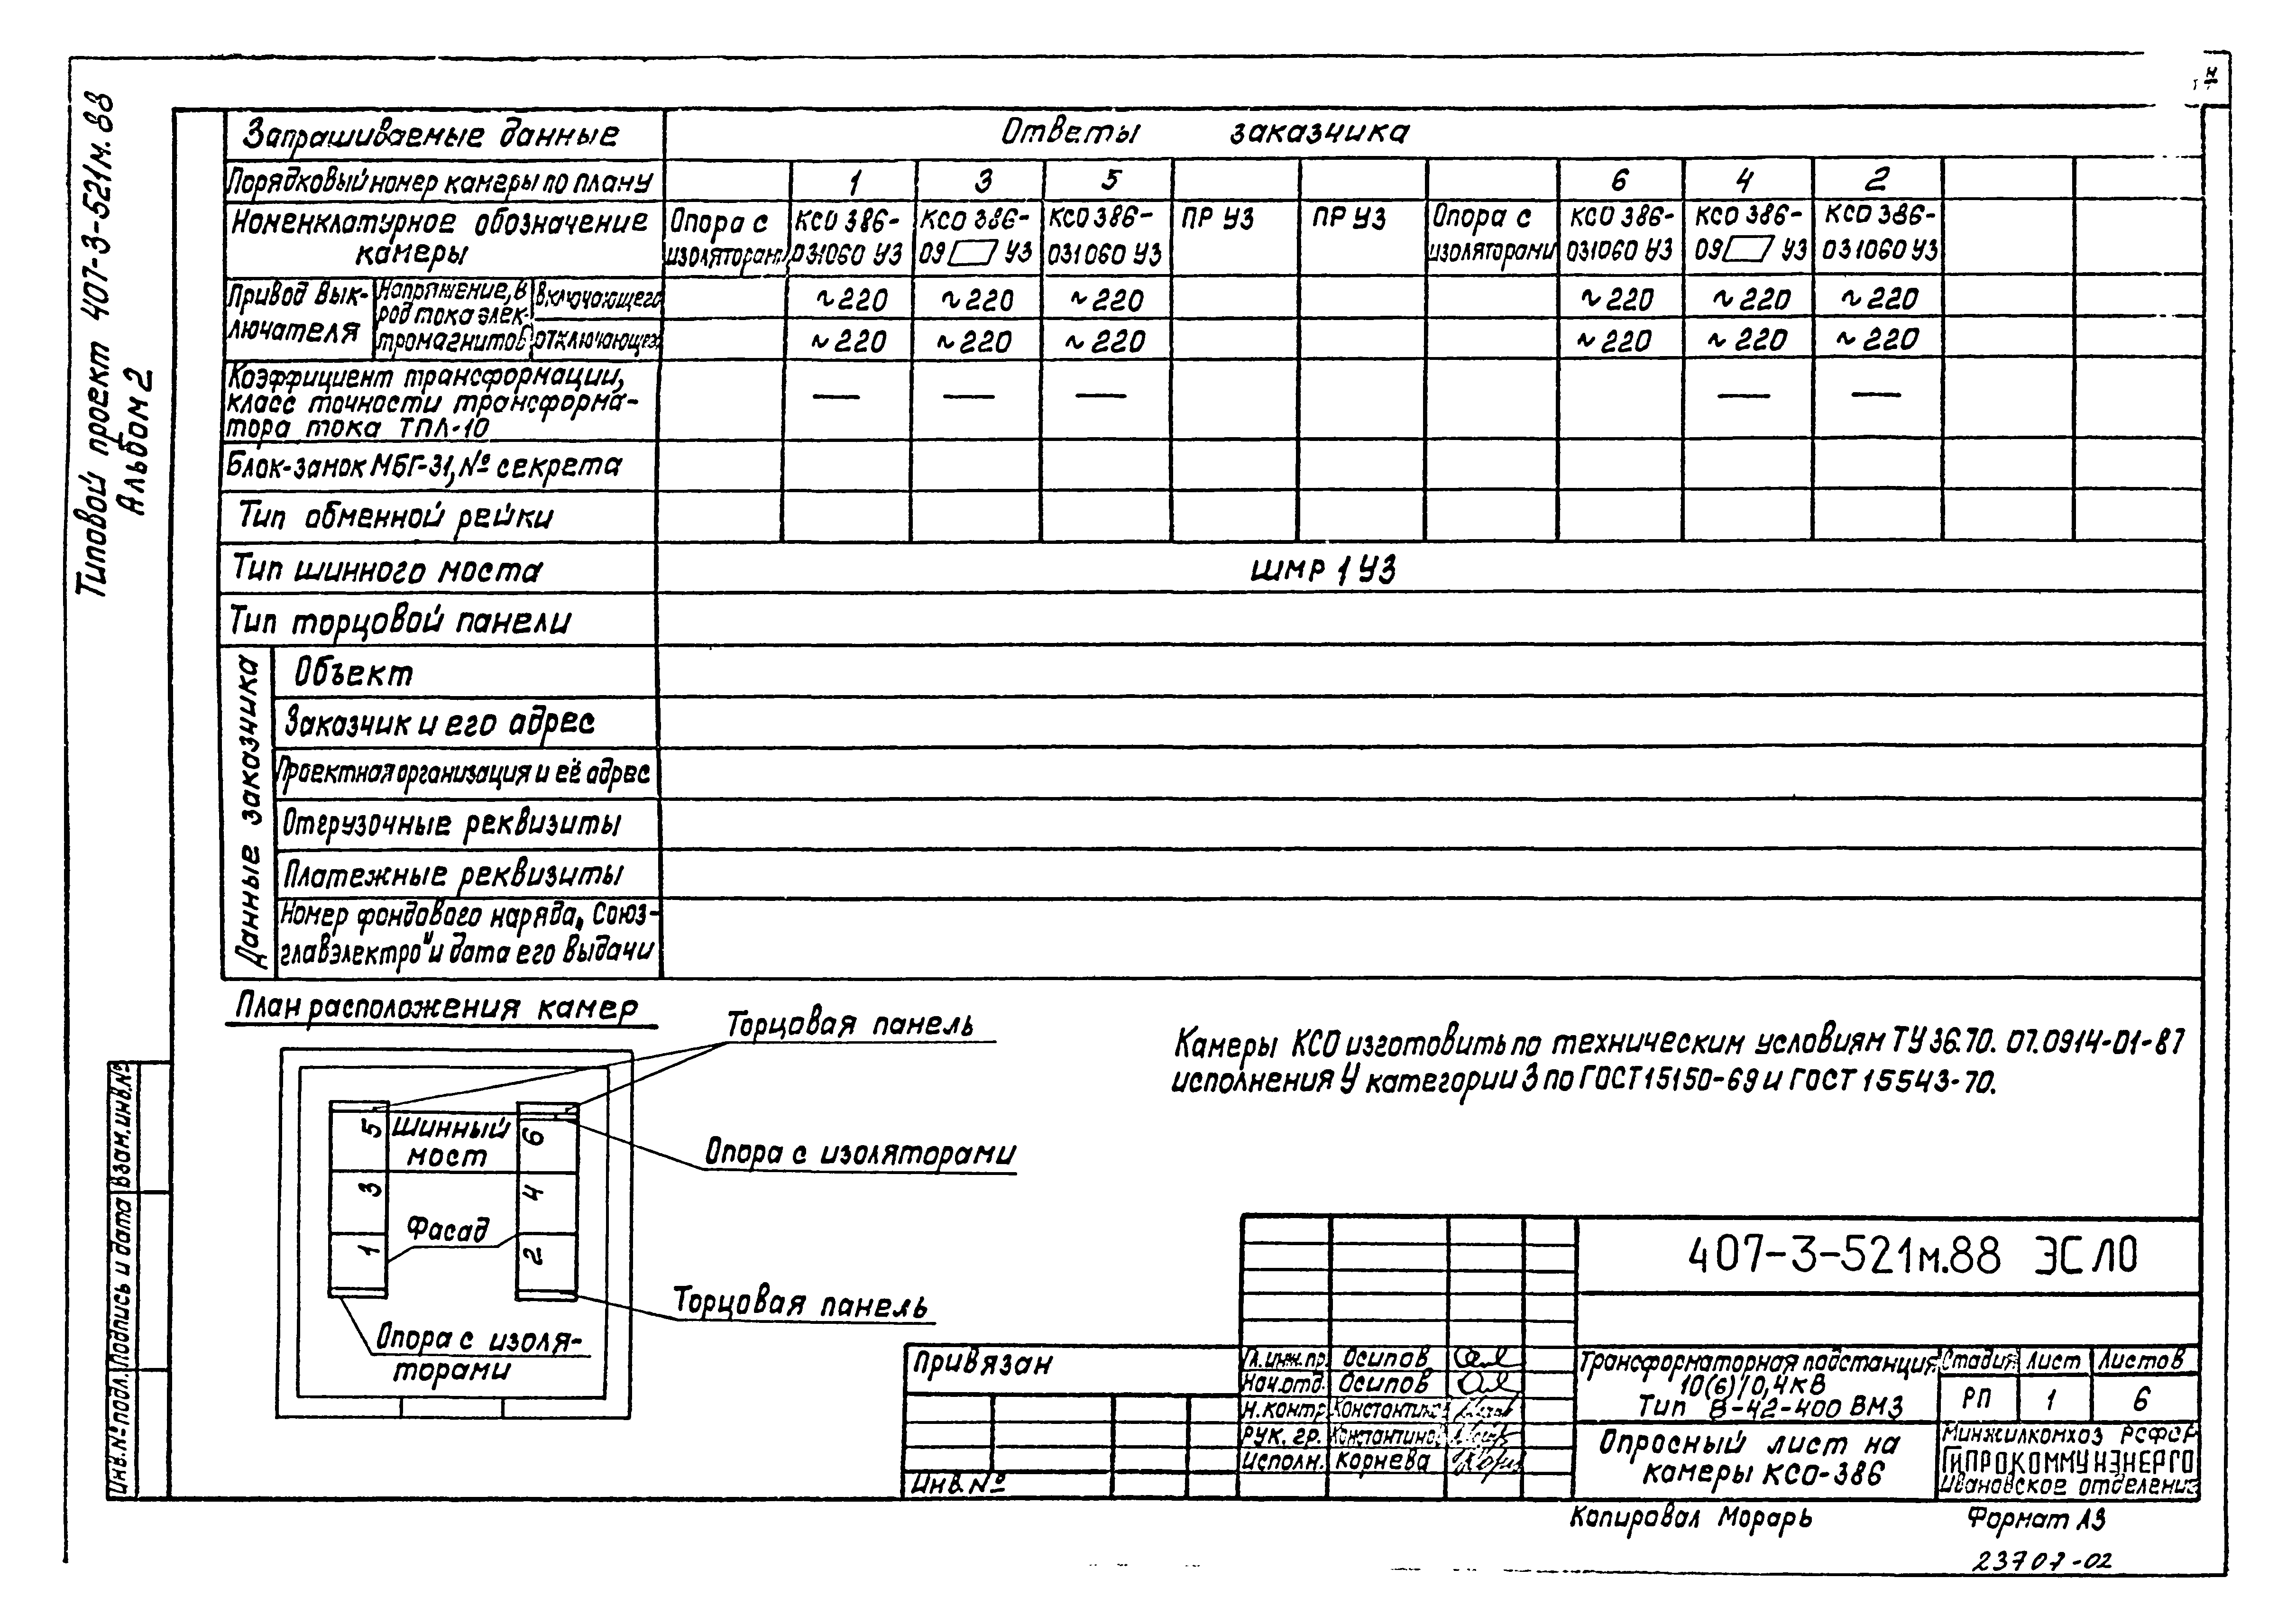 Типовой проект 407-3-521м.88
Альбом 2
Запрашиваемые данные
Ответы заказчика
Порядковый номер камеры по плану 1 3 5 6 4 2
Номенклатурное обозначение камеры
Опора с изоляторами
КСО 386-031060 У3
КСО 386-09 У3
КСО 386-031060 У3
ПР У3
ПР У3
Опора с изоляторами
КСО 386-031060 У3
КСО 386-09 У3
КСО 386-031060 У3
Привод выключателя
Напряжение, В род тока электромагнитов
включающего ~220 ~220 ~220 ~220 ~220 ~220
отключающего ~220 ~220 ~220 ~220 ~220 ~220
Коэффициент трансформации,
класс точности трансформа-
тора тока ТПЛ-10 — — — — —
Блок-замок МБГ-31, № секрета
Тип обменной рейки
Тип шинного моста ШМР 1 У3
Тип торцовой панели
Данные заказчика
Объект
Заказчик и его адрес
Проектная организация и её адрес
Отгрузочные реквизиты
Платежные реквизиты
Номер фондового наряда „Союз-
главэлектро" и дата его выдачи
План расположения камер
Торцовая панель
Опора с изоляторами
5 Шинный мост 6
3 4
1 Фасад 2
Торцовая панель
Опора с изоля-
торами
Камеры КСО изготовить по техническим условиям ТУ 36.70. 07.0914-01-87
исполнения У категории 3 по ГОСТ 15150-69 и ГОСТ 15543-70.
407-3-521м.88 ЭС ЛО
Привязан
Инв. №
Гл. инж. пр. Осипов
Нач. отд. Осипов
Н. контр. Константинов
Рук. гр. Константинов
Исполн. Корнева
Трансформаторная подстанция
10(6)/0,4кВ
Тип В-42-400 ВМ3
Стадия Лист Листов
РП 1 6
Опросный лист на
камеры КСО-386
Минжилкомхоз РСФСР
ГИПРОКОММУНЭНЕРГО
Ивановское отделение
Инв. № подл. Подпись и дата Взам. инв. №
Копировал Морарь Формат А3
23707-02